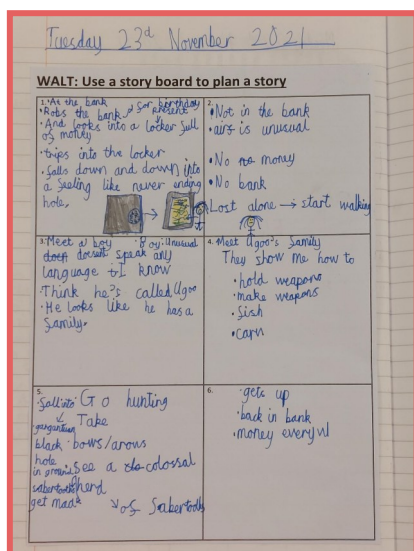 Tuesday 23rd November 2021
WALT: Use a story board to plan a story
1. • At the bank
• Robs the bank → for birthday present
• And looks into a locker full
of money
• trips into the locker
• falls down and down into
a feeling like never ending
hole.
2.
• Not in the bank
• is unusual
• No money
• No bank
Lost alone → start walking
3. Meet a boy • Boy: Unusual
doesnt speak any
language I know
• Think he's called Ugoo
• He looks like he has a
family.
4. Meet Ugoo's family
They show me how to
• hold weapons
• make weapons
• fish
• carn
5.
• fall into Go hunting
gargantuan Take
black • bows/arows
hole
in ground • See a colossal
sabertooth herd
get mad of Sabertooth
6. • gets up
• back in bank
• money